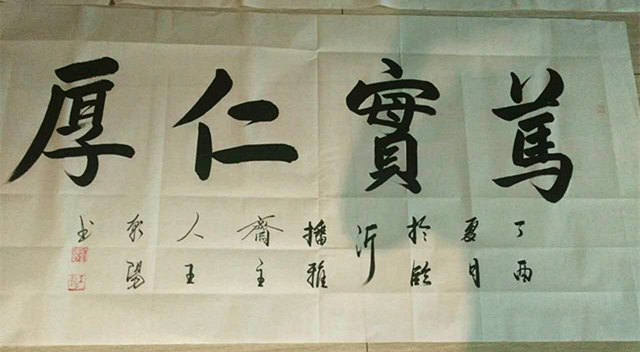 篤實仁厚
丁酉
夏月
於臨
沂
播雅
齋主
人王
陽
书